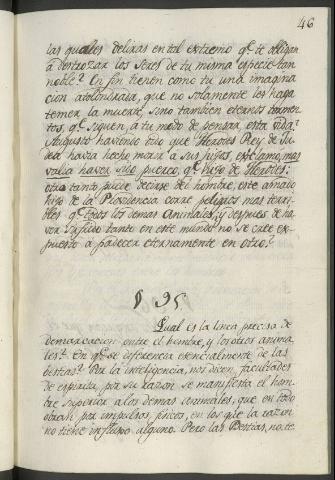 46
las quales deliras en tal extremo q.e te obligan
a destrozar los seres de tu misma especie tan
noble? En fin tienen como tu una imagina
cion atolondrada, que no solamente les haga
temer la muerte sino tambien eternos tormen
tos, q.e siguen, a tu modo de pensar, esta vida?
Augusto haviendo oido que Herodes Rey de Ju
dea havia hecho morir a sus hijos, exclamo, mas
valia haver sido puerco, q.e hijo de Herodes:
otro tanto puede decirse del hombre, este amado
hijo de la Providencia corre peligros mas terri
bles q.e todos los demas Animales; y despues de ha
ver sufrido tanto en este mundo no se cree ex
puesto a padecer eternamente en otro?
§ 95.
Qual es la linea precisa de
demarcacion entre el hombre, y los otros anima
les? En q.e se diferencia esencialmente de las
bestias? Por la inteligencia, nos dicen, facultades
de espiritu, por su razon se manifiesta el hom
bre superior a los demas animales, que en todo
obran por impulsos fisicos, en los que la razon
no tiene influxo alguno. Pero las Bestias, no te